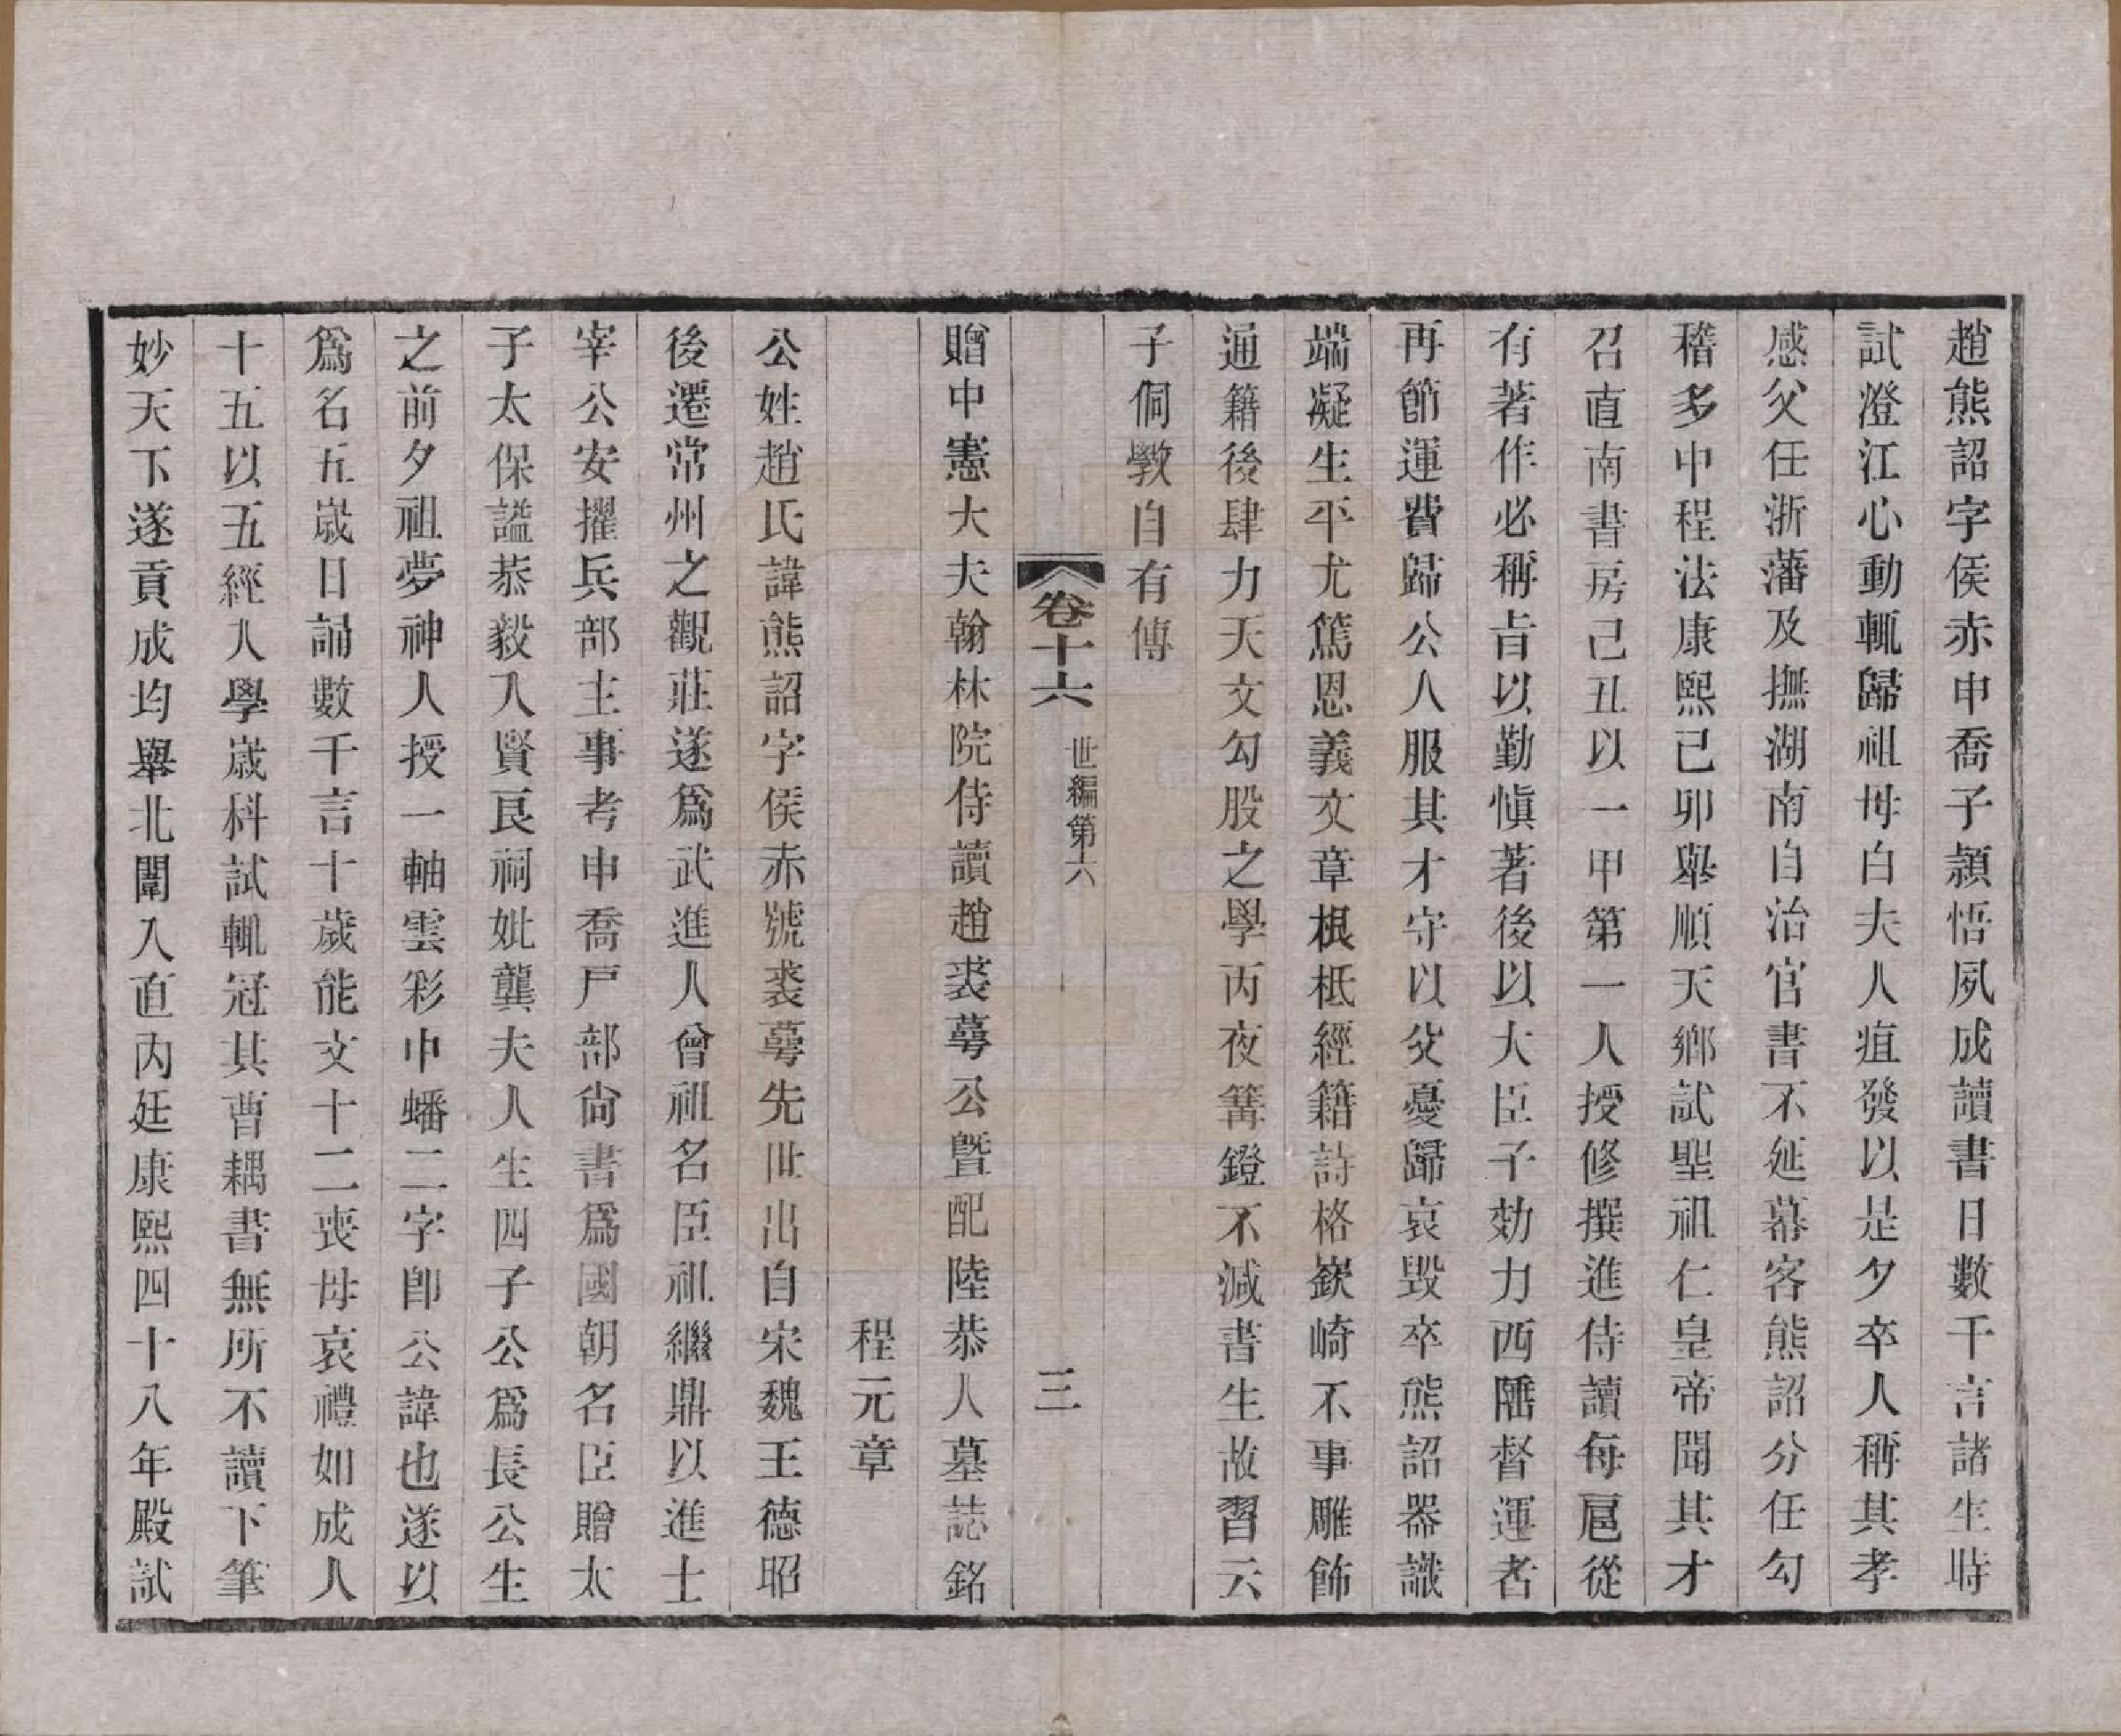 趙熊詔字侯赤申喬子潁悟夙成讀書日數千言諸生時
試澄江心動輒歸祖母白夫人疽發以是夕卒人稱其孝
感父任浙藩及撫湖南自治官書不延幕客熊詔分任勾
稽多中程法康熙己卯舉順天鄉試聖祖仁皇帝聞其才
召直南書房己丑以一甲第一人授修撰進侍讀每扈從
有著作必稱旨以勤慎著後以大臣子効力西陲督運者
再節運費歸公人服其才守以父憂歸哀毀卒熊詔器識
端凝生平尤篤恩義文章根柢經籍詩格嶔崎不事雕飾
通籍後肆力天文勾股之學丙夜篝鐙不減書生故習云
子侗斅自有傳
卷十六 世編第六 三
贈中憲大夫翰林院侍讀趙裘蕚公曁配陸恭人墓誌銘
程元章
公姓趙氏諱熊詔字侯赤號裘蕚先世出自宋魏王德昭
後遷常州之觀莊遂爲武進人曾祖名臣祖繼鼎以進士
宰公安擢兵部主事考申喬戶部尙書爲國朝名臣贈太
子太保謚恭毅入賢良祠妣龔夫人生四子公爲長公生
之前夕祖夢神人授一軸雲彩中蟠二字卽公諱也遂以
爲名五歲日誦數千言十歲能文十二喪母哀禮如成人
十五以五經入學歲科試輒冠其曹耦書無所不讀下筆
妙天下遂貢成均舉北闈入直內廷康熙四十八年殿試